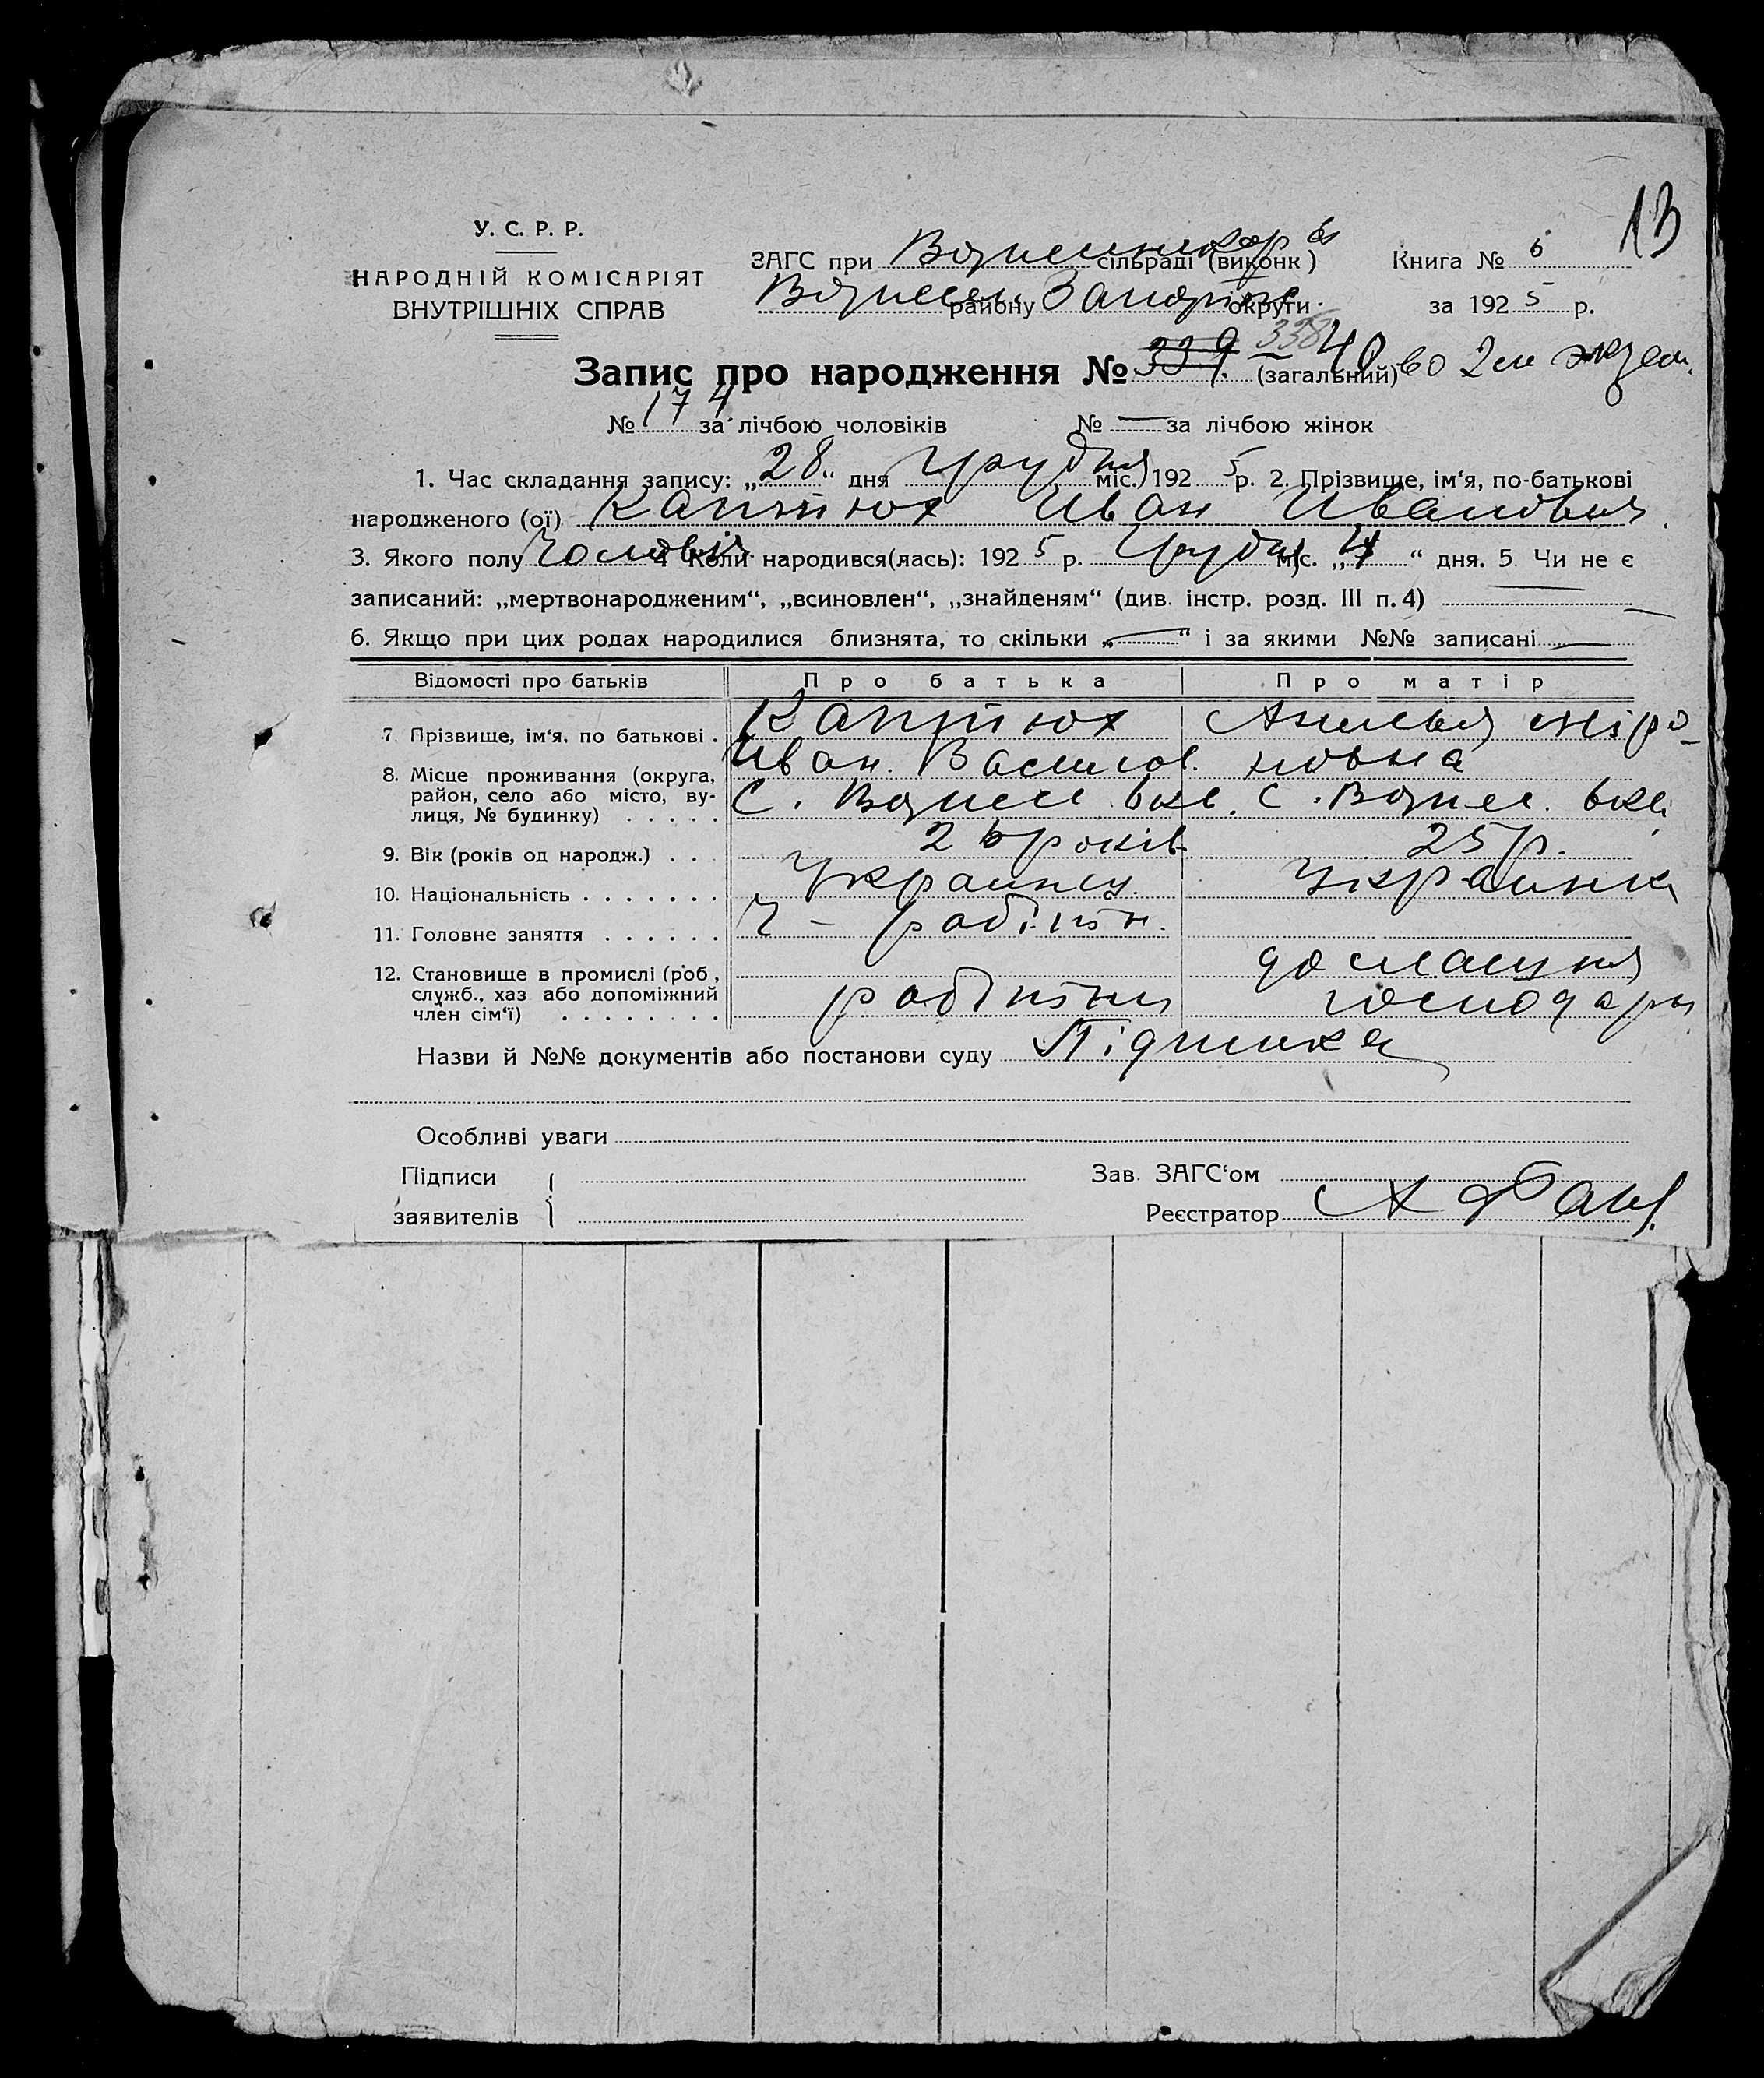 13
У. С. Р. Р.
НАРОДНІЙ КОМІСАРІЯТ
ВНУТРІШНІХ СПРАВ
ЗАГС при сільраді (виконк) Книга № 6
району округи за 1925 р.
Запис про народження № 339 338 40 (загальний) во 2 ем экзем.
№ 174 за лічбою чоловіків № — за лічбою жінок
1. Час складання запису: „28“ дня грудня міс. 1925 р. 2. Прізвище, ім‘я, по-батькові
народженого (ої) Каптюх Иван Иванович
3. Якого полу Чоловік 4 Коли народився(лась): 1925 р. Грудня міс. „4“ дня. 5. Чи не є
записаний: „мертвонародженим“, „всиновлен“, „знайденям“ (див. інстр. розд. III п. 4) —
6. Якщо при цих родах народилися близнята, то скільки „—“ і за якими №№ записані —
Відомості про батьків Про батька Про матір
7. Прізвище, ім‘я, по батькові . Каптюх міро-
Иван. Васильов. новна
8. Місце проживання (округа,
район, село або місто, ву-
лиця, № будинку) . . . . . С. Вознесе вка. С. Вознес. вка
9. Вік (років од народж.) . . . 26 років 25 р.
10. Національність . . . . . . . Украинец. Украинка
11. Головне заняття . . . . . . Ч - робітн.
12. Становище в промислі (роб,
служб., хаз або допоміжний
член сім‘ї) . . . . . . . . робітник домашня господарк
Назви й №№ документів або постанови суду Підписка
Особливі уваги
Підписи
заявителів
Зав. ЗАГС‘ом
Реєстратор